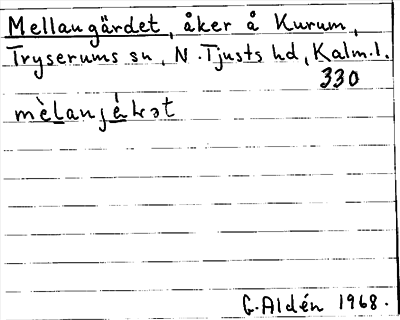 Mellangärdet, åker å Kurum,
Tryserums sn, N. Tjusts hd, Kalm.l.
330
mèlanjékət
G. Aldén 1968.